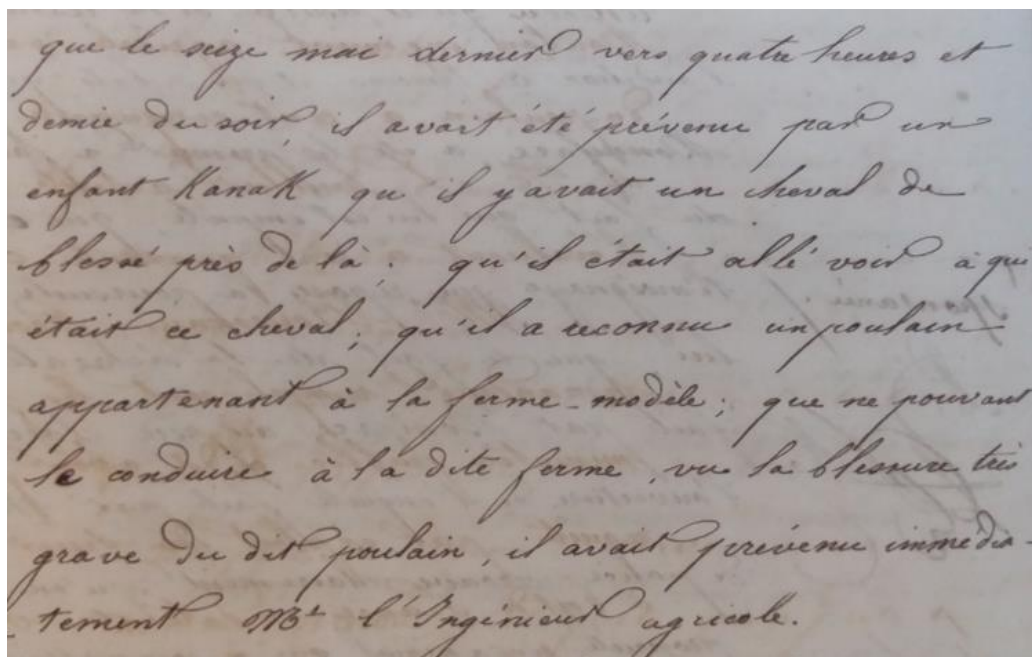 que le seize mai dernier vers quatre heures et
demie du soir il avait été prévenu par un
enfant Kanak qu'il y avait un cheval de
blessé près de là ; qu'il était allé voir à qui
était ce cheval ; qu'il a reconnu un poulain
appartenant à la ferme-modèle ; que ne pouvant
le conduire à la dite ferme, vu la blessure très
grave du dit poulain, il avait prévenu immédia-
tement Mr l'Ingénieur agricole.